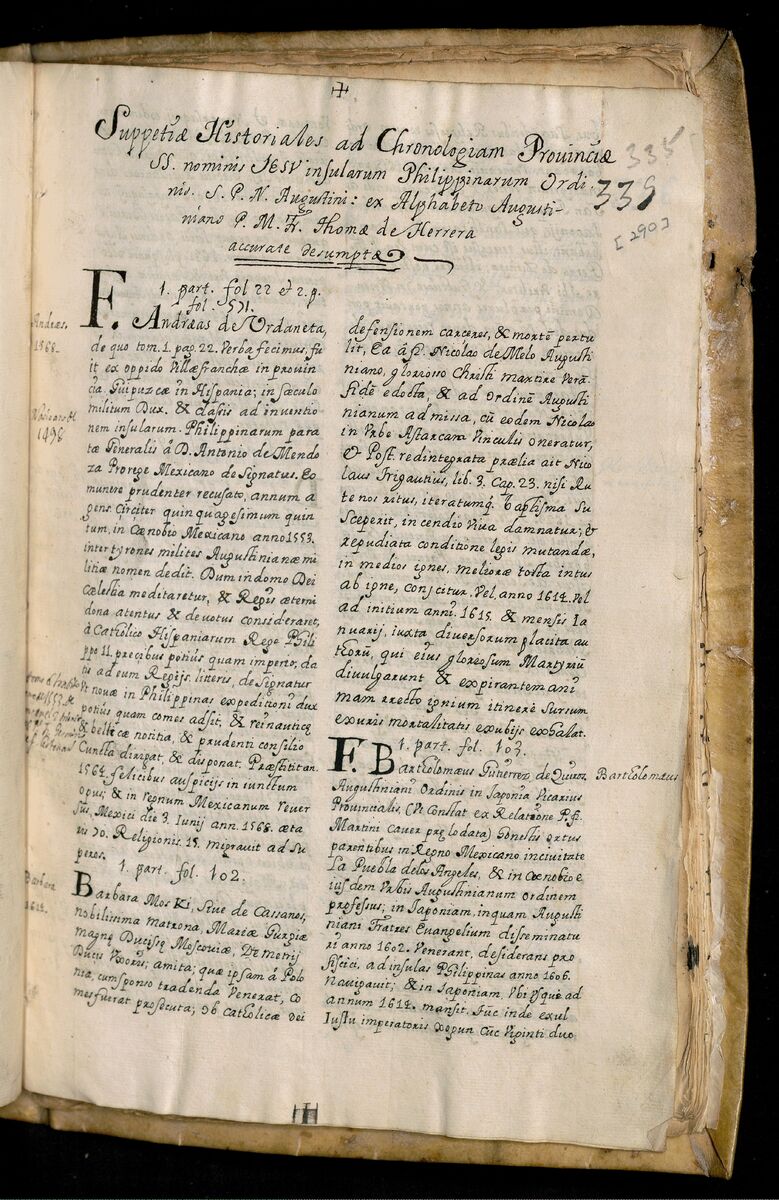 Suppetiæ Historiales ad Chronologiam Prouinciæ
SS. nominis IESV insularum Philippinarum Ordi
nis. S. P. N. Augustini: ex Alphabeto Augusti-
niano P. M. Fr. Thomæ de Herrera
accurate desumptæ
335
339
[290]
1. part. fol 22 et 2. p.
fol. 571.
F. Andræas de Vrdaneta,
de quo tom. 1. pag. 22. Verba fecimus, fu
it ex oppido Villæfranchæ in prouin
cia Guipuzcæ in Hispania; in sæculo
militum Dux, & classis ad inuentio
nem insularum Philippinarum para
tæ Generalis á D. Antonio de Mendo
za Prorege Mexicano designatus. Eo
munere prudenter recusato, annum a
gens circiter quinquagesimum quin
tum, in Cœnobio Mexicano anno 1553.
inter tyrones milites Augustinianæ mi
litiæ nomen dedit. Dum in domo Dei
Cælestia meditaretur, & Regis æterni
dona atentus & deuotus consideraret,
á Catholico Hispaniarum Rege Phili
ppo II. precibus potius quam imperio, da
tis ad eum Regijs literis, designatur
Vt nouæ in Philippinas expeditioni dux
potius quam comes adsit, & rei nauticę
& bellicæ notitia, & prudenti consilio
Cuncta dirigat, & disponat. Præstitit an.
1564. felicibus auspicijs iniunctum
opus; & in regnum Mexicanum reuer
sus, Mexici die 3. Iunij ann. 1568. æta
tis 70. Religionis 15. migrauit ad Su
peros.
1. part. fol. 102.
Barbara Mos Ki, siue de Cassanos,
nobilissima matrona, Mariæ Gurgiæ
magnę Ducissę Moscouiæ, Demetrij
Ducis Vxoris; amita; quæ ipsam á Polo
nia, cum sponso tradenda Venerat, co
mes fuerat prosecuta; ob Catholicæ Dei
Andræas.
1568.
1498
Barbara
1614.
defensionem carceres, & mortẽ pertu
lit, Ea á fr. Nicolao de Melo Augusti
niano, glorioso Christi martire Verã
fidẽ edocta, & ad Ordinẽ Augusti
nianum admissa, cũ eodem Nicolao
in Vrbe Astarcam Vinculis oneratur,
& Post redintegrata prælia ait Nico
laus Trigautius, lib. 3. Cap. 23. nisi Ru
tenos ritus, iteratumq. baptisma su
sceperit, incendio Viua damnatur; &
repudiata conditione legis mutandæ,
in medios ignes, meliore tosta intus
ab igne, conjcitur. Vel anno 1614. vel
ad initium anni. 1615. & mensis Ia
nuarij, iuxta diuersorum placita au
thorũ, qui eius gloreosum Martyriũ
diuulgarunt & expirantem ani
mam rrecto ignium itinere sursum
exuuis mortalitatis exubijs exhalat.
1. part. fol. 103.
F. Bartholomæus Gutierrez,
Augustiniani Ordinis in Iaponia Vicarius
Prouincialis, (Vt Constat ex Relatione P. fr.
Martini Cauer prelodata) honestis ortus
parentibus in Regno Mexicano inciuitate
La Puebla delos Angeles, & in Cœnobio e
iusdem Vrbis Augustinianum Ordinem
professus; in Iaponiam, in quam Augusti
niani Fratres Euangelium disseminatu
ri anno 1602. Venerant, desiderans pro
ficisci, ad insulas Philippinas anno 1606.
nauigauit; & in Iaponiam, Vbi Vsque ad
annum 1614. mansit. Tũc inde exul
Iussu imperatoris Xogun cũc Viginti duo
Bartholomæus